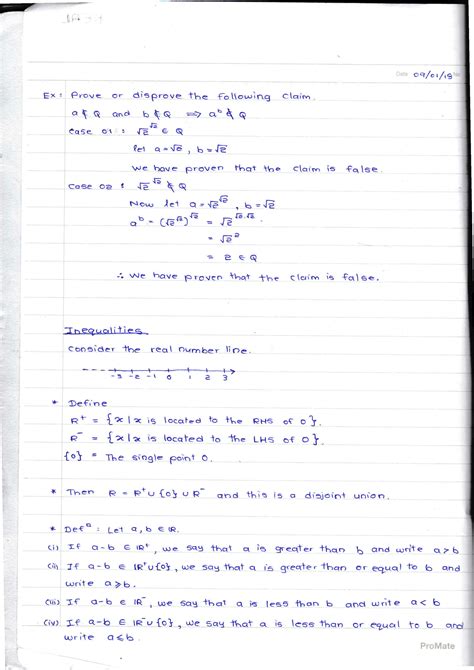 Date 09/01/18
Ex: Prove or disprove the following claim.
a ∉ Q and b ∉ Q ⟹ a^b ∉ Q
Case 01: √2^√2 ∈ Q
let a=√2, b=√2
We have proven that the claim is false.
Case 02: √2^√2 ∉ Q
Now let a = √2^√2, b=√2
a^b = (√2^√2)^√2 = √2^√2.√2
= √2^2
= 2 ∈ Q
∴ We have proven that the claim is false.
Inequalities
Consider the real number line.
-3 -2 -1 0 1 2 3
* Define
R⁺ = {x|x is located to the RHS of 0}.
R⁻ = {x|x is located to the LHS of 0}.
{0} = The single point 0.
* Then R = R⁺∪{0}∪R⁻ and this is a disjoint union.
* Defⁿ: Let a, b ∈ IR.
(i) If a-b ∈ IR⁺, we say that a is greater than b and write a>b
(ii) If a-b ∈ IR⁺∪{0}, we say that a is greater than or equal to b and
write a≥b.
(iii) If a-b ∈ IR⁻, we say that a is less than b and write a<b
(iv) If a-b ∈ IR⁻∪{0}, we say that a is less than or equal to b and
write a≤b.
ProMate